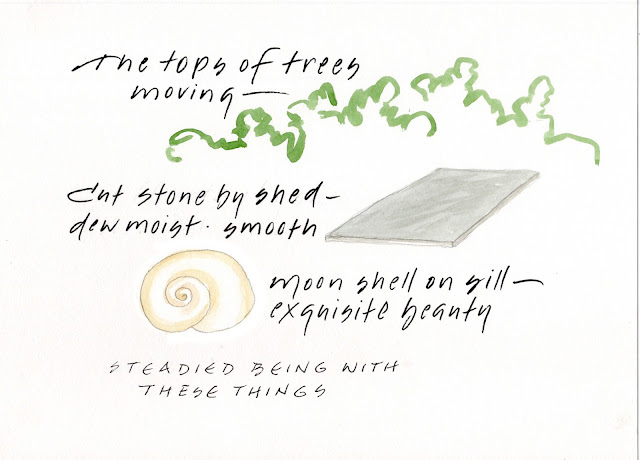 The tops of trees
moving—
Cut stone by shed—
dew moist. smooth
moon shell on sill—
exquisite beauty
STEADIED BEING WITH
THESE THINGS